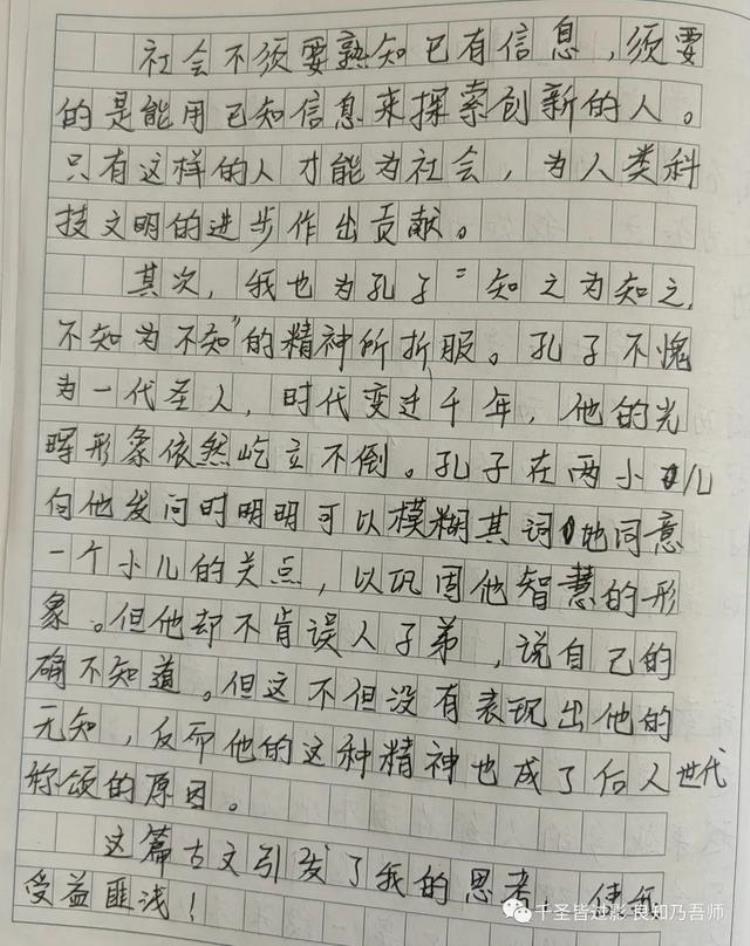 社会不须要熟知已有信息，须要
的是能用已知信息来探索创新的人。
只有这样的人才能为社会，为人类科
技文明的进步作出贡献。
其次，我也为孔子“知之为知之，
不知为不知”的精神所折服。孔子不愧
为一代圣人，时代变迁千年，他的光
晖形象依然屹立不倒。孔子在两小儿
向他发问时明明可以模糊其词地同意
一个小儿的关点，以巩固他智慧的形
象。但他却不肯误人子弟，说自己的
确不知道。但这不但没有表现出他的
无知，反而他的这种精神也成了后人世代
称颂的原因。
这篇古文引发了我的思考，使我
受益匪浅！
千圣皆过影 良知乃吾师